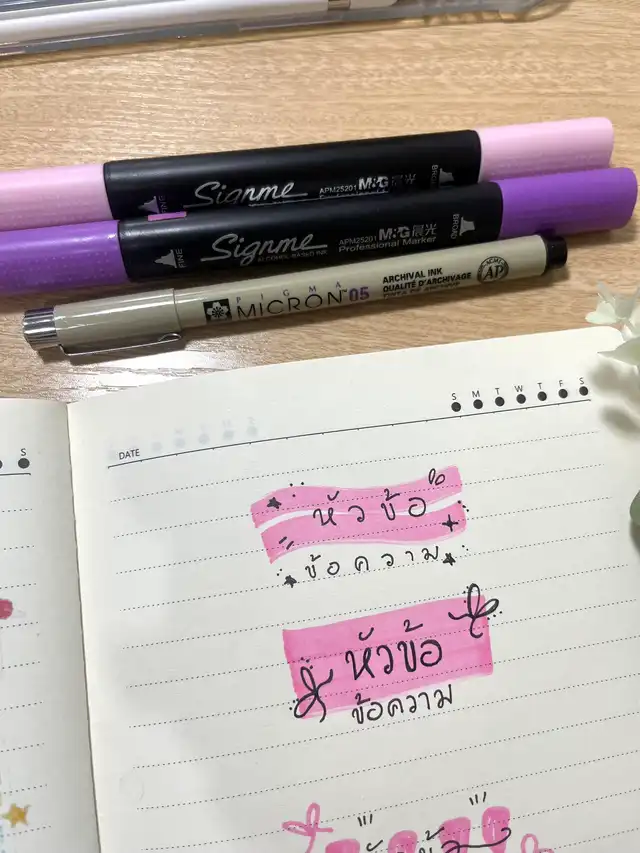 Signme
APM25201 M&G 晨光
FINE
Signme
ALCOHOL BASED INK
APM25201 M&G 晨光
Professional Marker
FINE
BROAD
PIGMA
MICRON™ 05
ARCHIVAL INK
QUALITÉ D'ARCHIVAGE
ACMI
AP
S M T W T F S
DATE
S
หัวข้อ
ข้อความ
หัวข้อ
ข้อความ